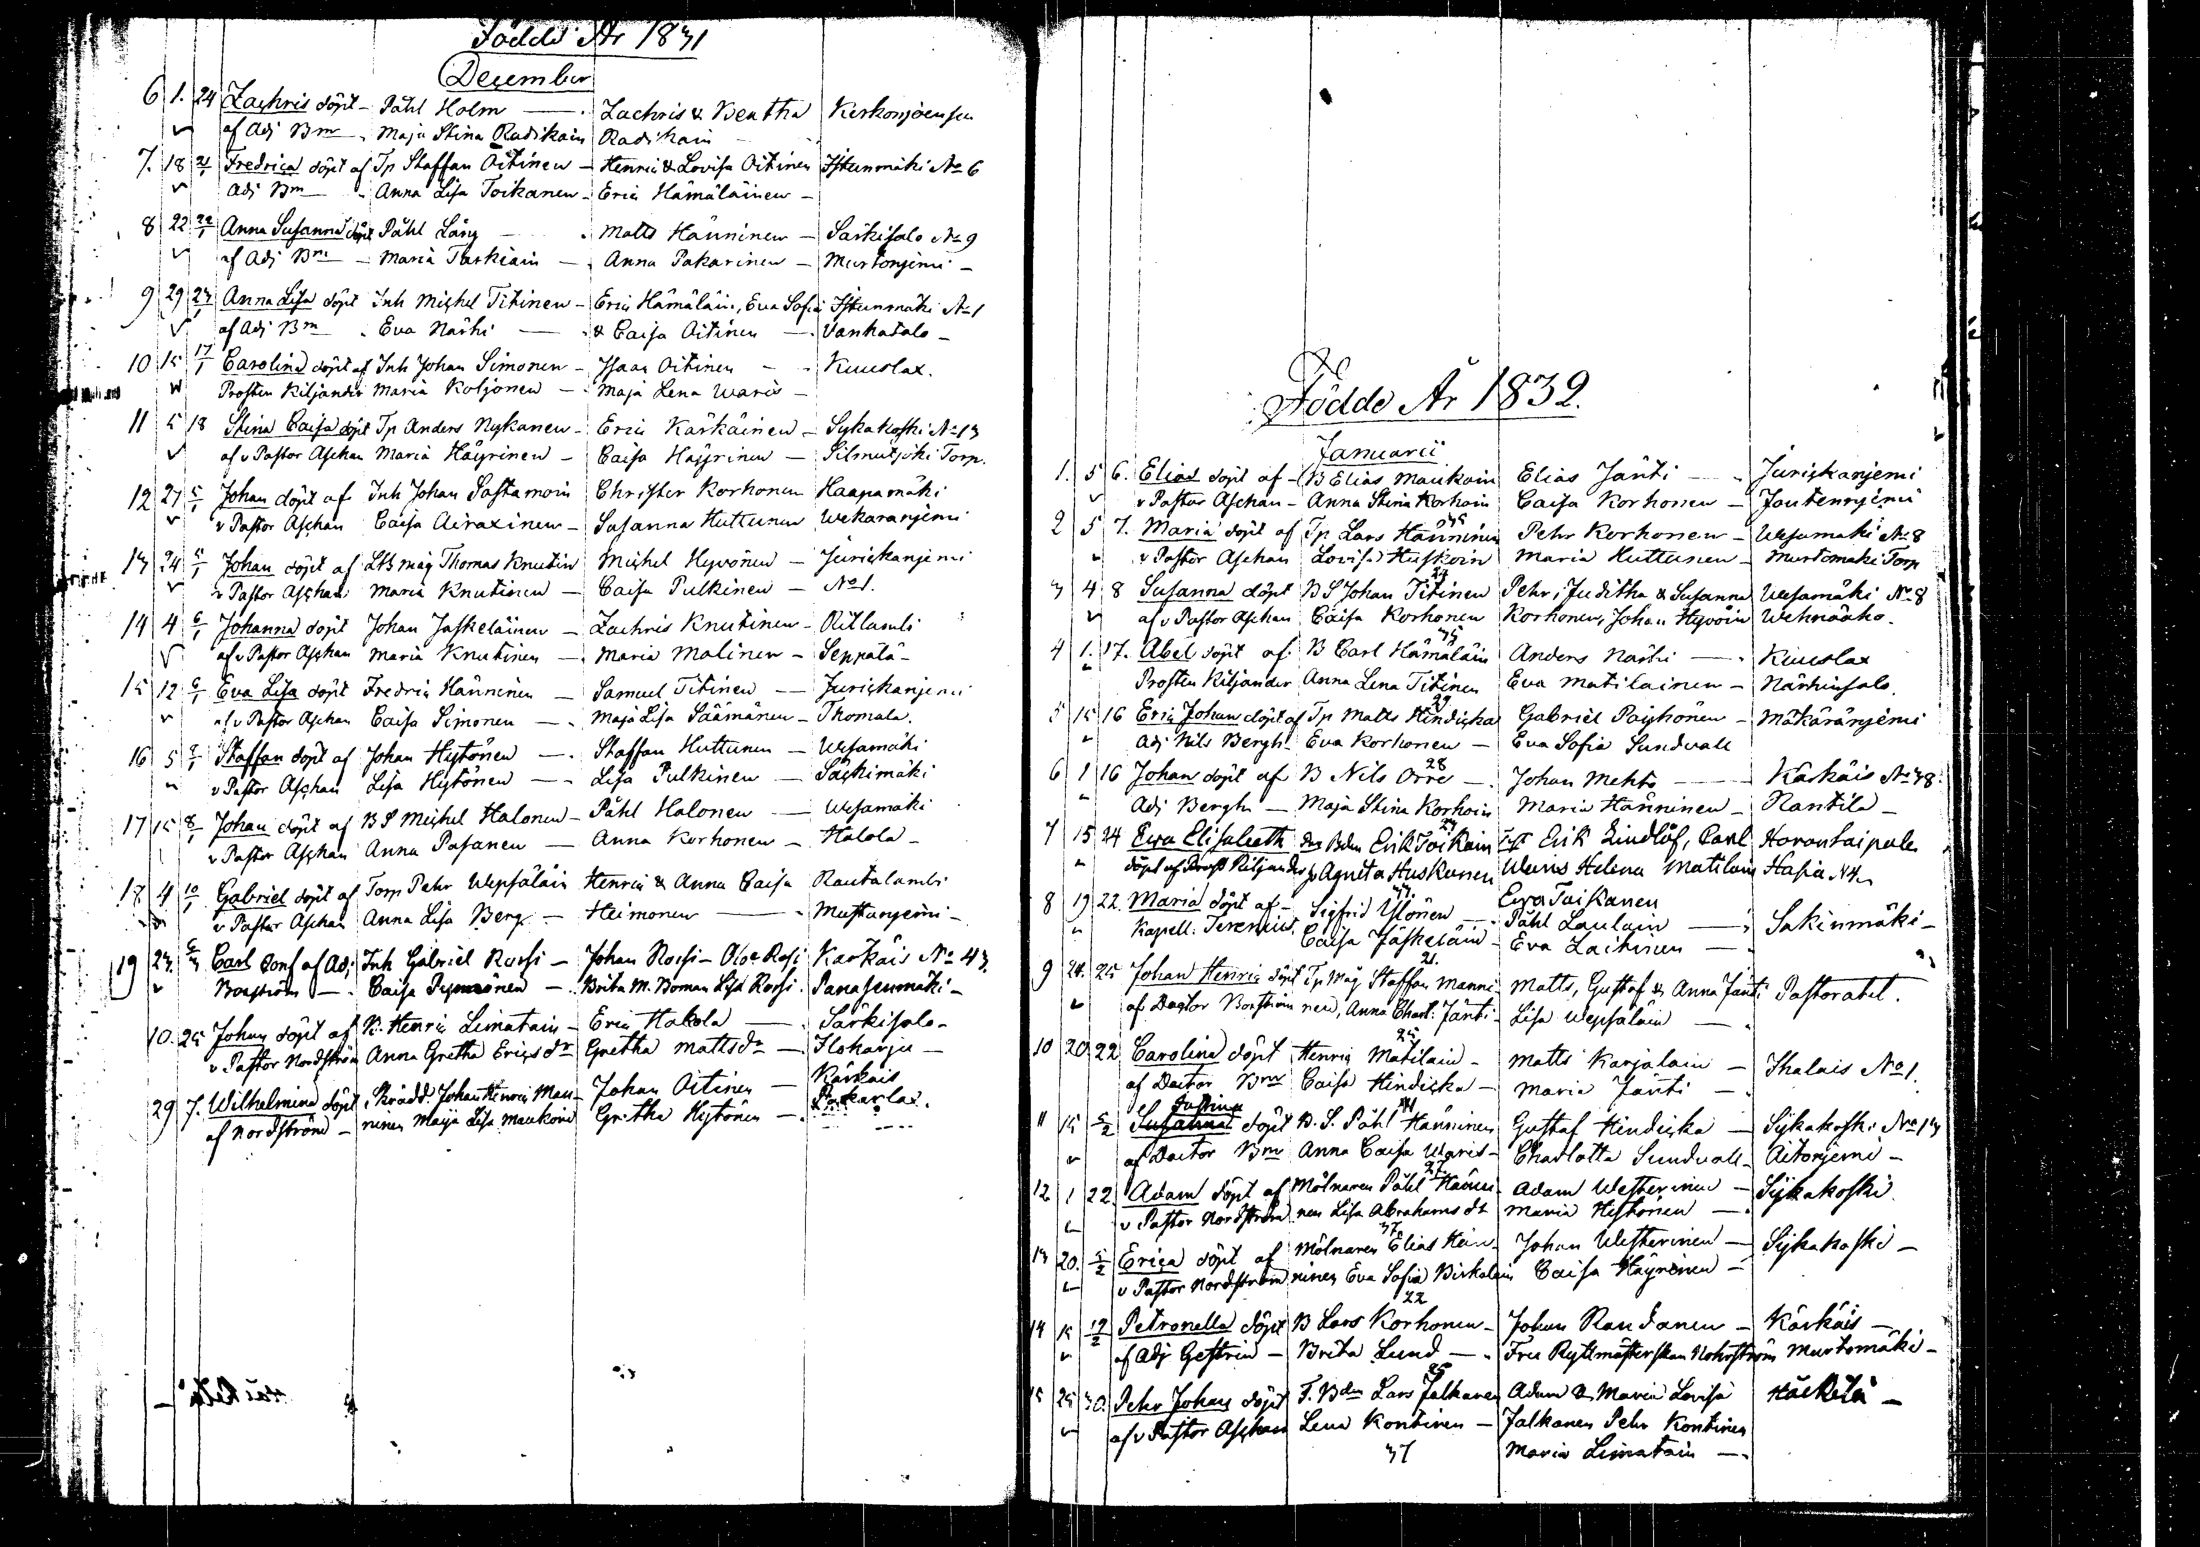 Födde År 1831
December
6 1. 24 Zachris döpt Påhl Holm — Zachris & Beatha Kerkonjoensu
af Adj Bm Maja Stina Radikain Radikain
7. 18 21/1 Fredrica döpt af Tp Staffan Oitinen — Henric & Lovisa Oitinen Istunmäki No 6
Adj Bm Anna Lisa Toikanen — Eric Hämäläinen —
8 22 22/1 Anna Susanna döpt Påhl Läng — Matts Hänninen — Särkisalo No 9
af Adj Bm — Maria Tarkiain — Anna Pakarinen — Murtonjemi —
9 29 23/1 Anna Lisa döpt Inh Michel Titinen — Eric Hämäläin, Eva Sofia Istunmäki No 1
af Adj Bm Eva Närhi — & Caisa Oitinen — Vankatalo —
10 15 17/1 Carolina döpt af Inh Johan Simonen — Isaac Oitinen — Kuuslax.
Prosten Kiljander Maria Koljonen — Maja Lena Waris —
11 5 18 Stina Caisa döpt Tp Anders Nykanen — Eric Kärkäinen — Sykakoski No 13
af v Pastor Aschan Maria Häyrinen — Caisa Häyrinen — Silmutjoki Torp.
12 27 5/1 Johan döpt af Inh Johan Sastamoin Christer Korhonen Haapamäki
v Pastor Aschan Caisa Airaxinen — Susanna Huttunen Wekaranjemi
13 24 5/1 Johan döpt af LtB måg Thomas Knutin Michel Hyvönen — Jurickanjemi
v Pastor Aschan Maria Knutinen — Caisa Pulkinen — No 1.
14 4 6/1 Johanna döpt Johan Jaskeläinen — Zachris Knutinen — Oitlambi
af v Pastor Aschan Maria Knutinen — Maria Malinen — Seppälä —
15 12 6/1 Eva Lisa döpt Fredric Hänninen — Samuel Titinen — Jurickanjemi
af v Pastor Aschan Caisa Simonen — Maja Lisa Säämänen — Thomala.
16 5 7/1 Staffan döpt af Johan Hytönen — Staffan Huttunen — Wesamäki
v Pastor Aschan Lisa Hytönen — Lisa Pulkinen — Säckimäki
17 15 8/1 Johan döpt af B S Michel Halonen — Påhl Halonen — Wesamäki
v Pastor Aschan Anna Pasanen — Anna Korhonen — Halola —
18 4 10/1 Gabriel döpt af Torp Pehr Wepsäläin Henric & Anna Caisa Rautalambi
v Pastor Aschan Anna Lisa Berg — Heimonen — Mustanjemi —
19 23. Carl döpt af Adj Inh Gabriel Rossi — Johan Rossi — Kärkäis No 43
Boström — Caisa — Brita M. Boman Lisa Rossi. Panasenmäki —
10. 25 Johan döpt af K. Henric Limatain — Eric Hakola — Särkisalo —
v Pastor Nordström Anna Gretha Ericsdr Gretha Mattsdr — Ilokarju —
29 7. Wilhelmina döpt Skrädd. Johan Henric Man- Johan Oitinen — Kärkäis
af Nordström — ninen Maija Lisa Maukoin Gretha Hytönen — Pukarlax.
Födde År 1832.
Januarii
1. 5 6. Elias döpt af — B Elias Maukoin Elias Jänti — Jurickanjemi
v Pastor Aschan — Anna Stina Korhoin Caisa Korhonen — Joutennjemi
2 5 7. Maria döpt af Tp Lars Hänninen 35 Pehr Korhonen — Wesamäki No 8
v Pastor Aschan Lovisa Huskoin Maria Huttunen — Murtomäki Torp
3 4 8 Susanna döpt B S Johan Titinen 27 Pehr, Juditha & Susanna Wesamäki No 8
af v Pastor Aschan Caisa Korhonen Korhonen, Johan Hyvöin Wehnääho.
4 1. 17. Abel döpt af B Carl Hämäläin 35 Anders Närhi — Kuuslax
Prosten Kiljander Anna Lena Titinen Eva Matilainen — Närhinsalo
5 15 16 Eric Johan döpt af Tp Matts Hindicka 29 Gabriel Paischönen — Mäkäränjemi
Adj Nils Bergh — Eva Korhonen — Eva Sofia Sundvall
6 1 16 Johan döpt af B Nils Orre 28 — Johan Mehto — Kärkäis No 38.
Adj Bergh — Maja Stina Korhoin Maria Hänninen — Rantila —
7 15 24 Ewa Elisabeth Bdn Erik Toikain Erik Lindlöf, Carl Horontaipale
döpt af Prost Kiljander Agneta Huskunen Waris Helena Matilain Hapa N4
Ewa Toikanen
8 19 22. Maria döpt af — Sigfrid Ylönen 33 — Påhl Laulain — Sakinmäki —
Kapell. Terenius. Caisa Jäskeläin — Eva Laitinen —
9 24. 25 Johan Henric döpt Tp Måg Staffan Manni- 21. Matts, Gustaf & Anna Jänti Pastoratet.
af Doctor Boström nen, Anna Charl: Jänti — Lisa Wepsäläin —
10 20 22 Carolina döpt Henric Matilain — 25 Matts Karjalain — Ihalais No 1.
af Doctor Bm Caisa Hindicka — Maria Jänti —
Justina
11 15 5/2 Susanna döpt B. S. Påhl Hänninen Gustaf Hindicka — Sykakoski No 13
af Doctor Bm Anna Caisa Waris — Charlotta Sundvall — Aitonjemi —
12 1 22 Adam döpt af Mölnaren Påhl Hänni- 27 Adam Westerinen — Sykakoski
v Pastor Nordström nen Lisa Abrahamsdt Maria Hytönen —
13 20. 5/2 Erica döpt af Mölnaren Elias Hän- 37 Johan Westerinen — Sykakoski —
v Pastor Nordström ninen Eva Sofia Birkolain Caisa Häyrinen —
14 15 19/2 Petronella döpt B Lars Korhonen — 22 Johan Raudanen — Kärkäis —
af Adj Gestrin — Brita Lund — Fru Ryttmästerskan Nohrström Murtomäki —
15 25 30. Pehr Johan döpt F. Bdn Lars Jalkanen 25 Adam & Maria Lovisa Häckilä —
af v Pastor Aschan Lena Kontinen — Jalkanen Pehr Kontinen
31 Maria Limatain —